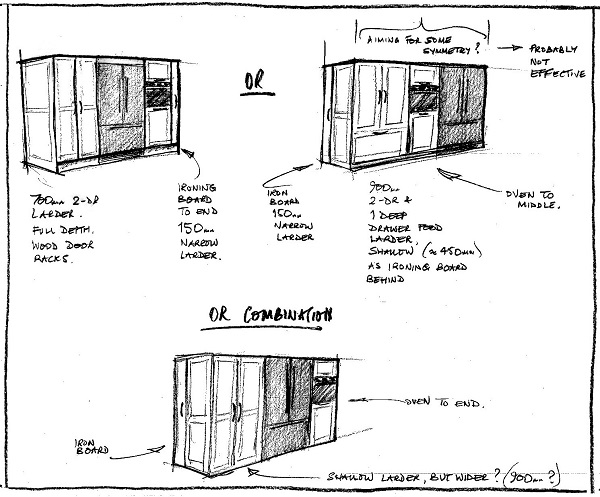 AIMING FOR SOME
SYMMETRY?
PROBABLY
NOT
EFFECTIVE
OR
700mm 2-DR
LARDER.
FULL DEPTH.
WOOD DOOR
RACKS.
IRONING
BOARD
TO END
150mm
NARROW
LARDER.
IRON
BOARD
150mm
NARROW
LARDER
900mm
2-DR &
1 DEEP
DRAWER FOOD
LARDER,
SHALLOW (≈450mm)
AS IRONING BOARD
BEHIND
OVEN TO
MIDDLE.
OR COMBINATION
OVEN TO END.
IRON
BOARD
SHALLOW LARDER, BUT WIDER? (900mm?)